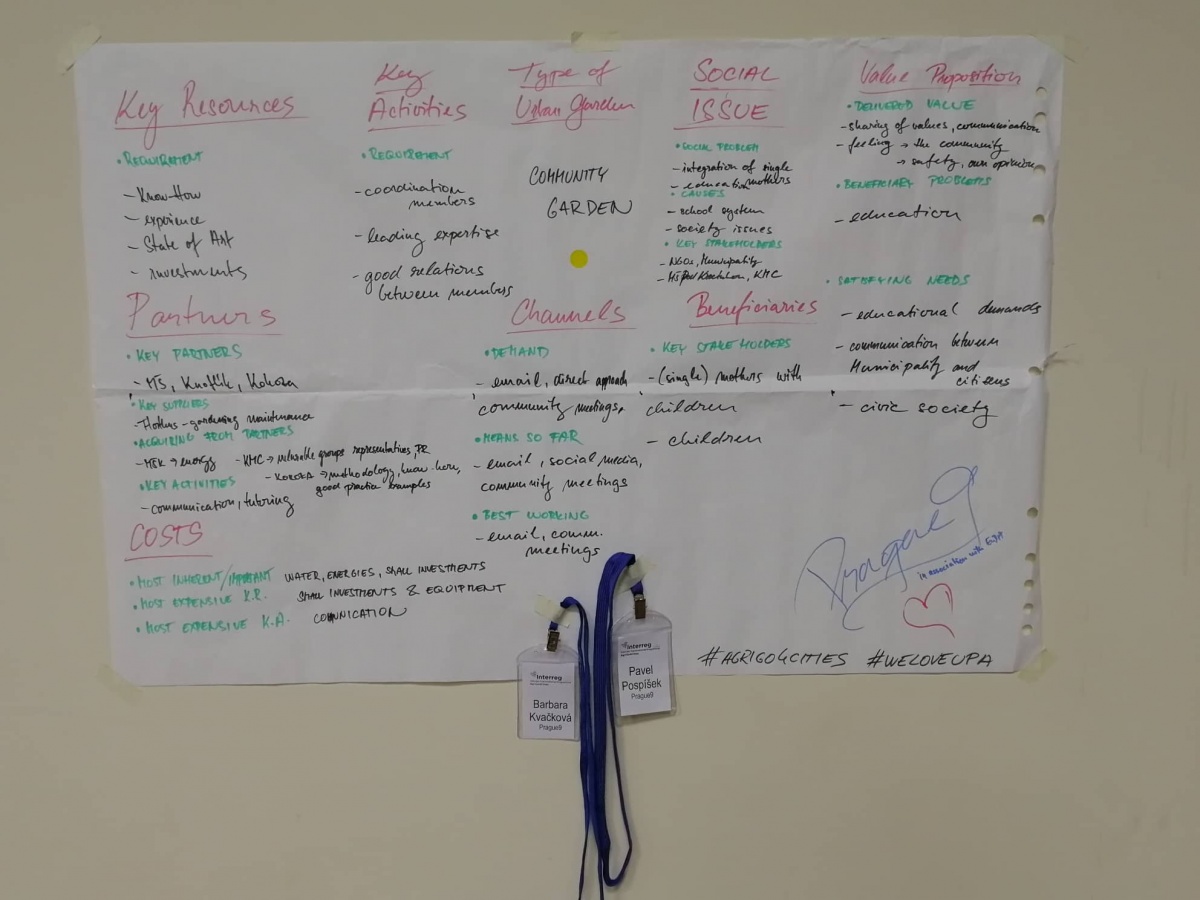 Key Resources
• REQUIREMENT
- Know-How
- experience
- State of Art
- investments
Key
Activities
• REQUIREMENT
- coordination
members
- leading expertise
- good relations
between members
Type of
Urban Garden
COMMUNITY
GARDEN
SOCIAL
ISSUE
• SOCIAL PROBLEM
- integration of single
mothers
- education
• CAUSES
- school system
- society issues
• KEY STAKEHOLDERS
- NGOs, Municipality
KMC
Value Proposition
• DELIVERED VALUE
- sharing of values, communication
- feeling → the community
→ safety, own opinion
• BENEFICIARY PROBLEMS
- education
• SATISFYING NEEDS
- educational demands
- communication between
Municipality and
citizens
- civic society
Partners
• KEY PARTNERS
- MŠ, Knoflík, Kokoza
• KEY SUPPLIERS
- gardening maintenance
• ACQUIRING FROM PARTNERS
→ energy - KMC → representatives, PR
- KOKOZA → methodology, know-how,
good practice examples
• KEY ACTIVITIES
- communication, tutoring
Channels
• DEMAND
- email, direct approach
community meetings
• MEANS SO FAR
- email, social media,
community meetings
• BEST WORKING
- email, comm.
meetings
Beneficiaries
• KEY STAKEHOLDERS
- (single) mothers with
children
- children
COSTS
• MOST INHERENT/IMPORTANT WATER, ENERGIES, SMALL INVESTMENTS
• MOST EXPENSIVE K.R. SMALL INVESTMENTS & EQUIPMENT
• MOST EXPENSIVE K.A. COMNICATION
Prague 9
in association with
#AGRIGO4CITIES #WELOVEUPA
Interreg
Barbara
Kvačková
Prague9
Interreg
Pavel
Pospíšek
Prague9